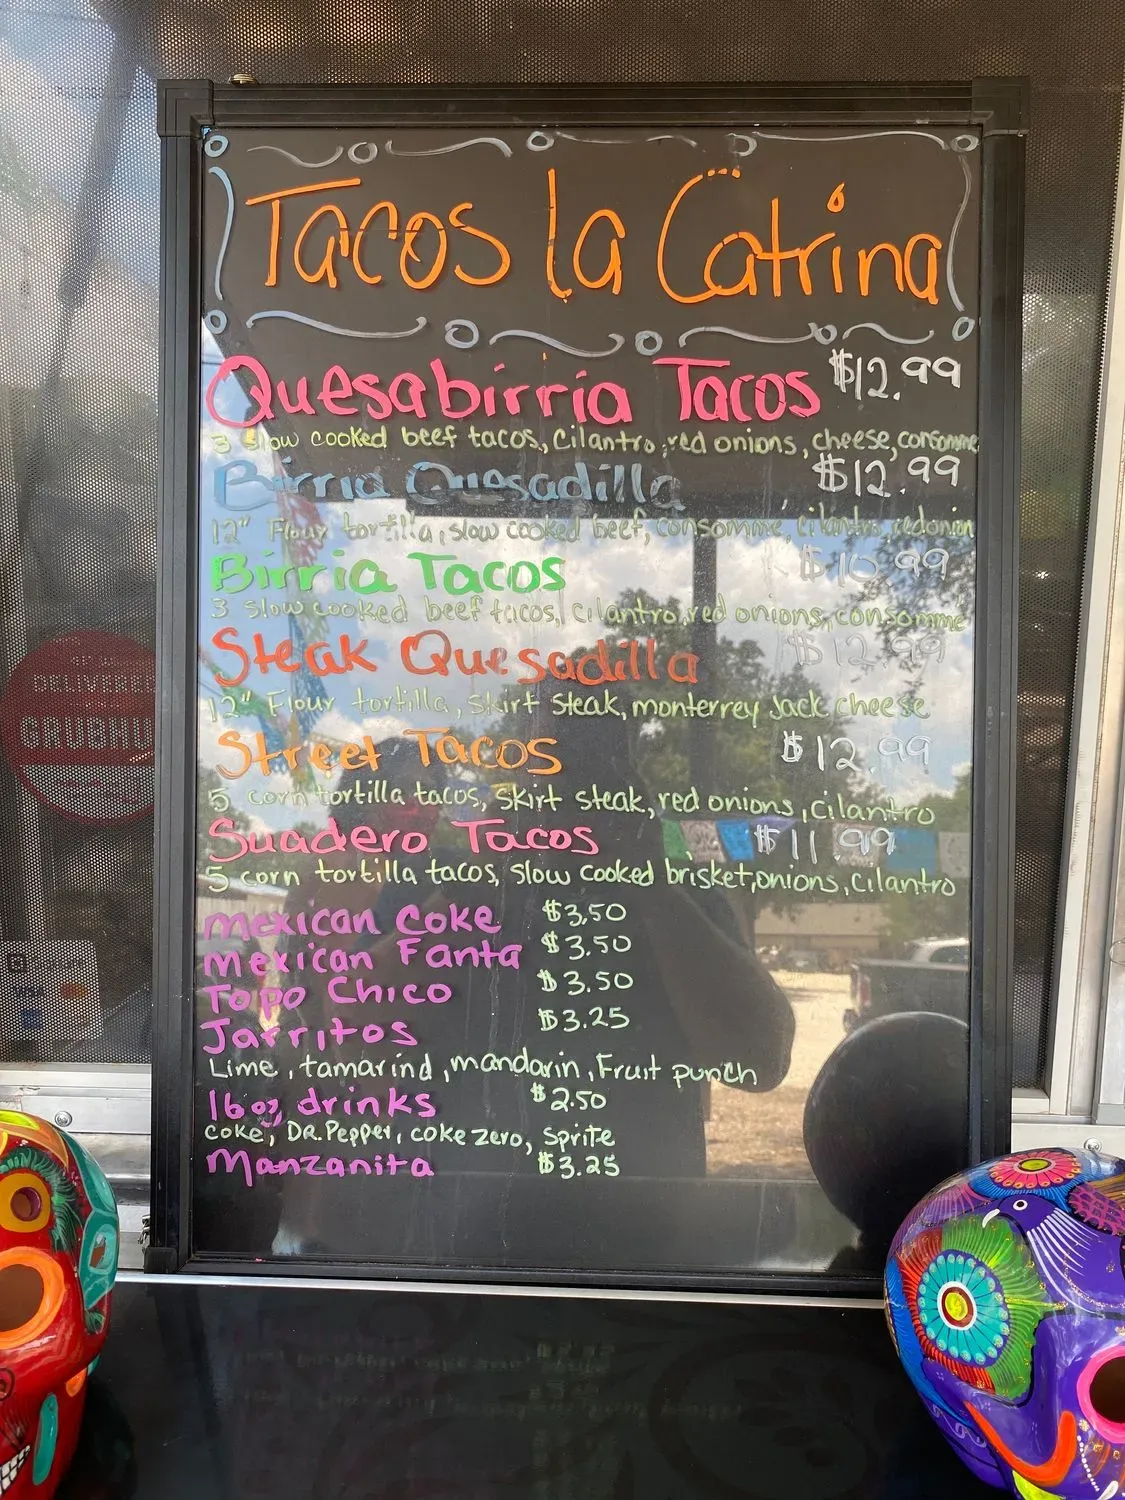 Tacos la Catrina
Quesabirria Tacos $12.99
3 slow cooked beef tacos, cilantro, red onions, cheese, consomme
Birria Quesadilla $12.99
12" Flour tortilla, slow cooked beef, consomme, cilantro, red onion
Birria Tacos $10.99
3 slow cooked beef tacos, cilantro, red onions, consomme
Steak Quesadilla $12.99
12" Flour tortilla, skirt steak, monterrey Jack cheese
Street Tacos $12.99
5 corn tortilla tacos, skirt steak, red onions, cilantro
Suadero Tacos $11.99
5 corn tortilla tacos, slow cooked brisket, onions, cilantro
Mexican Coke $3.50
Mexican Fanta $3.50
Topo Chico $3.50
Jarritos $3.25
Lime, tamarind, mandarin, Fruit punch
16 oz drinks $2.50
coke, DR. Pepper, coke zero, sprite
Manzanita $3.25
DELIVERED
GRUBHU